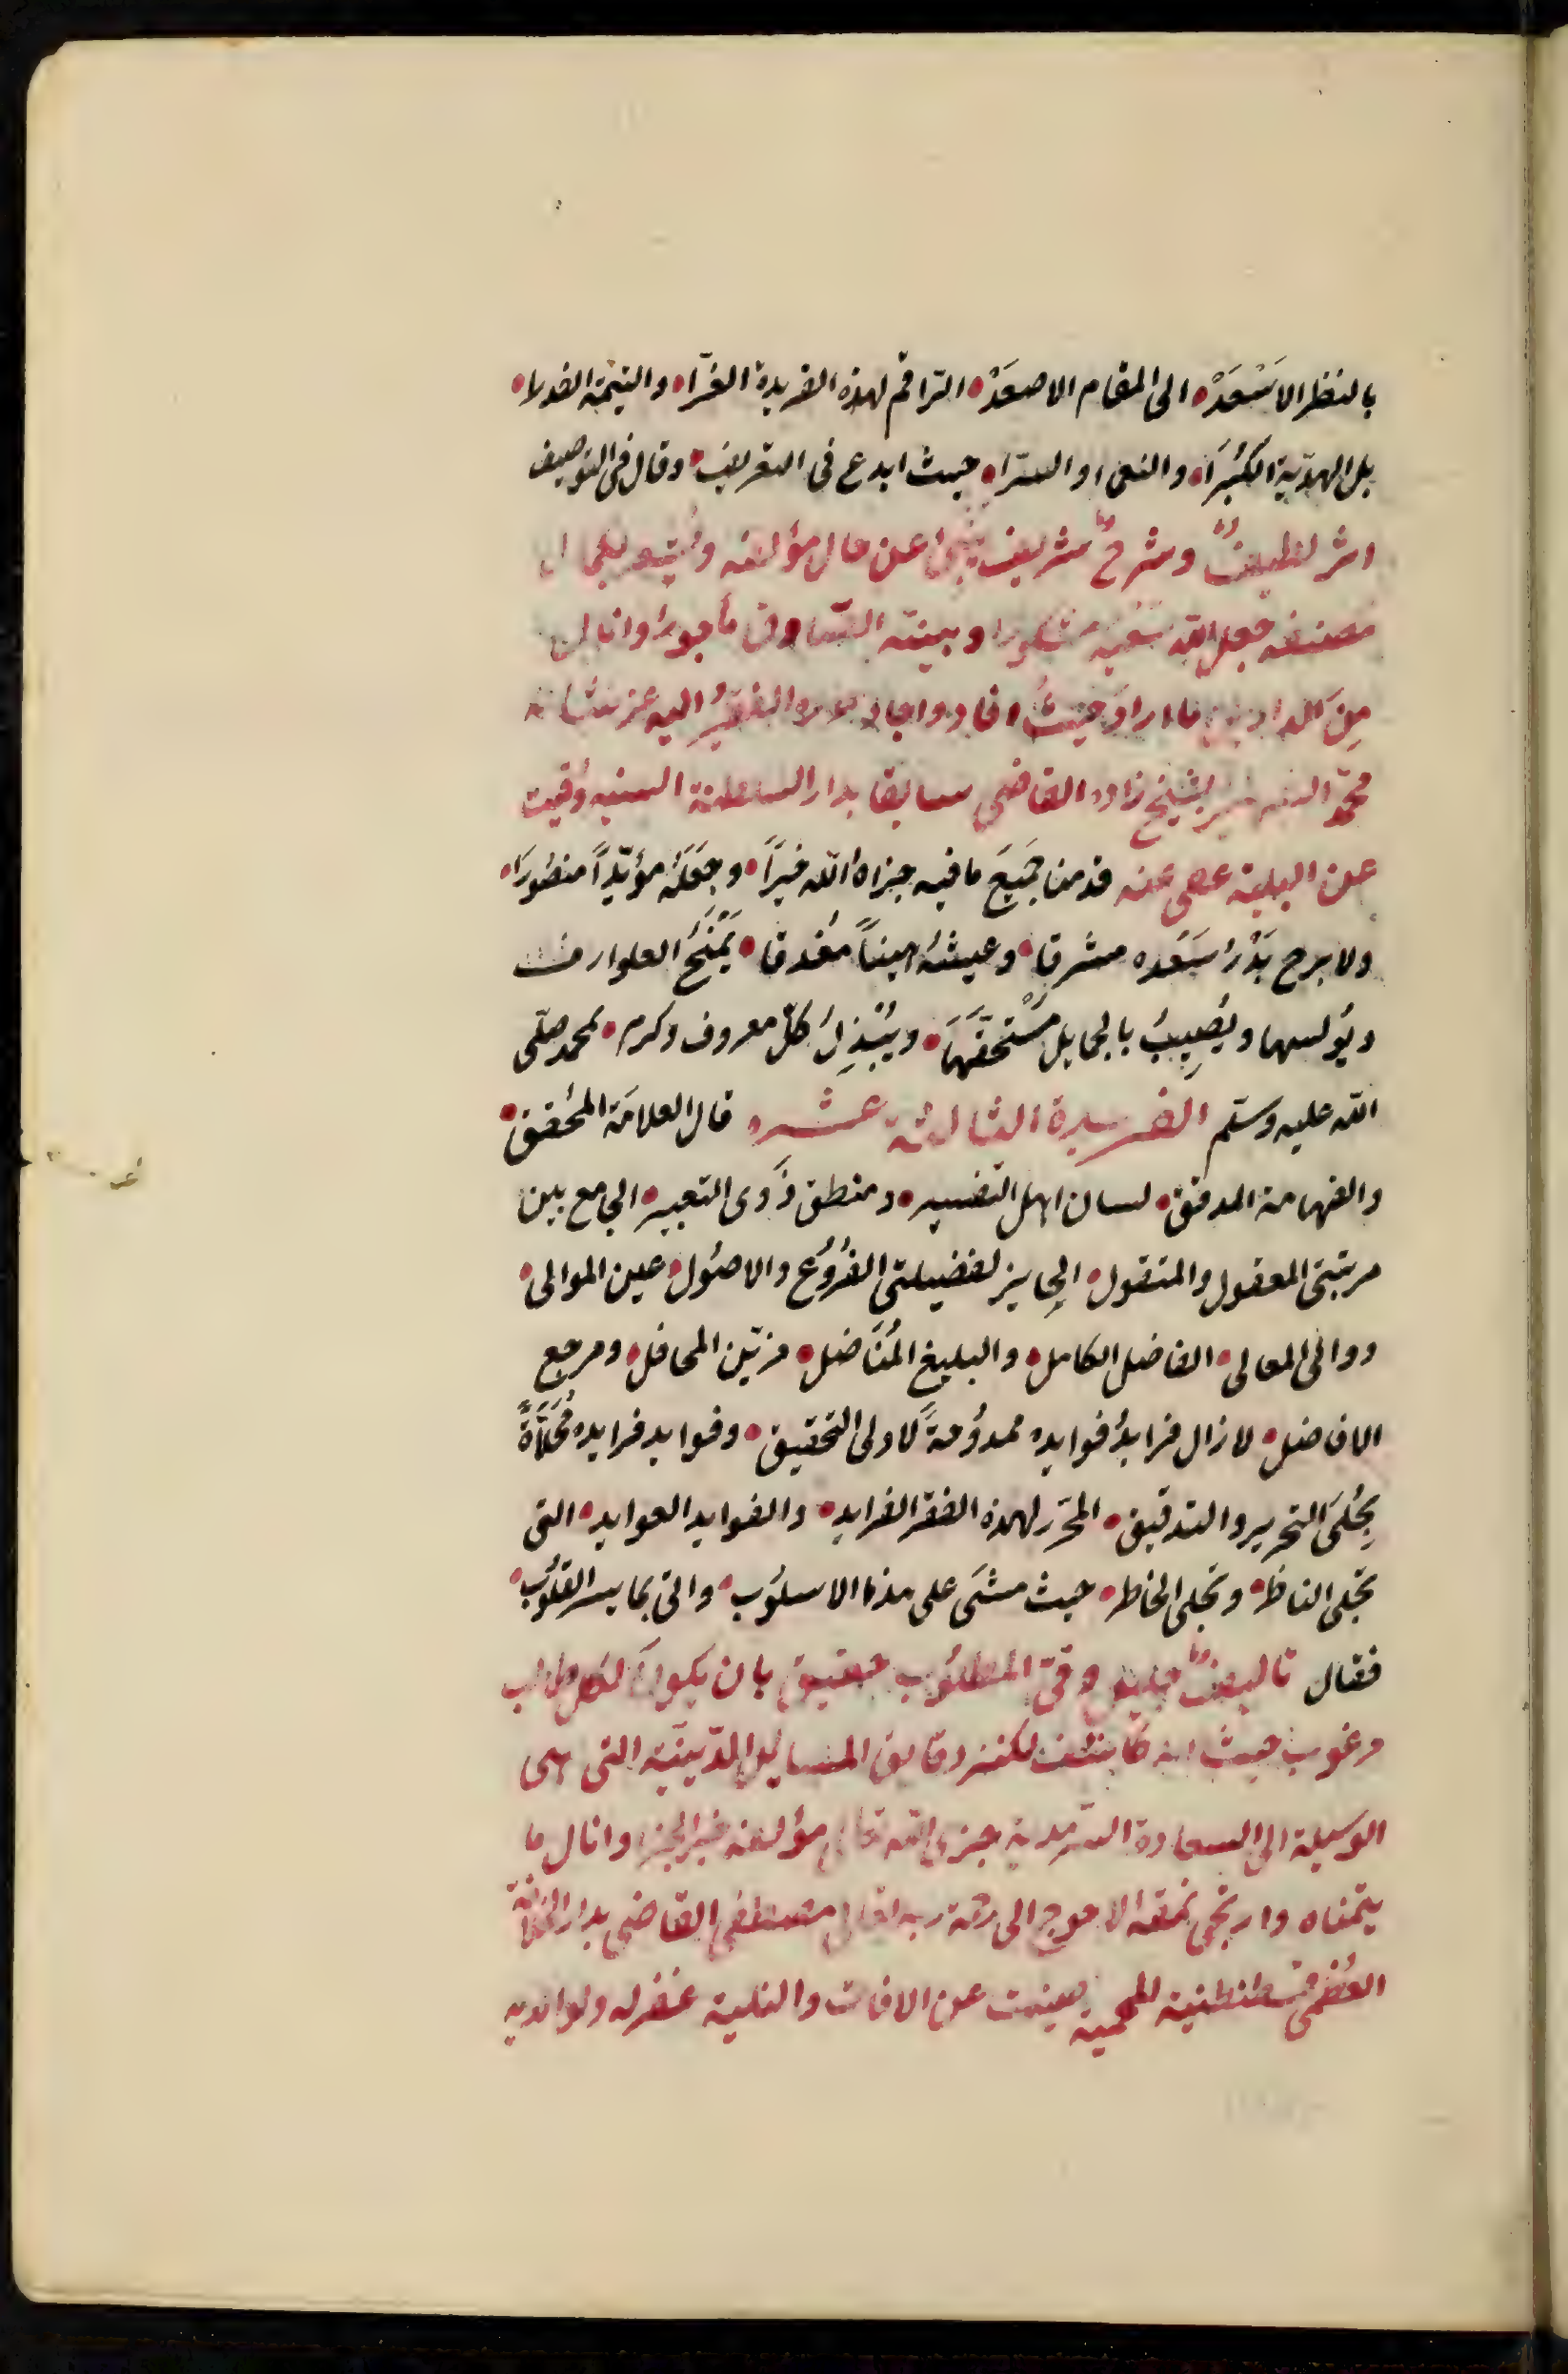 بالنظر الاَسْعَدْ • الى المقام الاصعَدْ • الراقم لهذه الفريدة الغرّا • واليتيمة العذرا •
بل الهديّة الكُبْرَا • والنعما والسرّا • حيث ابدع فى التعريف • وقال فى التوصيف
اثر لطيفٌ وشرحٌ شريف ينبئ عن حال مؤلفه
مصنفه جعل الله سَعْيَه مشكورا مأجورا وانا له
مِنَ ما اراد حيثُ افاد واجاد الفقيرُ اليه عز شانه
محمّد الشهير بشيخ زاده القاضى سابقا بدار السلطنة السنيه وُقيت
عن البلية عفى عنه جَميعَ ما فيه جزاهُ الله خيرًا • وجعَلهُ مؤيّدًا منصُورَا •
ولا برح بَدْرُ سَعْده مشرقا • وعيشُه مُغدقا • يَمْنَحُ العوارف
ويُولسها ويُصِيبُ بالجمايل مُسْتَحقّهَا • ويَبْذِلُ كلّ معروف وكرم • بمحمد صلّى
الله عليه وسلّم الفريدة الثالثة عشره قال العلامَة المُحَقق •
والفهامة المدقق • لسان اهل التفسير • ومنطق ذَوى التعبير • الجامع بين
مرتبتى المعقول والمنقول • الحايز لفضيلتى الفُرُوع والاصُول • عين الموالى •
ووالى المعالى • الفاضل الكامل • والبليغ المُنَاضل • مزيّن المحافل • ومرجع
الافاضل • لا زال فرايدُ فوايده ممدُوحةً لاولى التحقيق • وفوايد فرايده مُحَلَّاةً
بحُلَى التحرير والتدقيق • المحرّر لهذه الفقر الفرايد • والفوايد العوايد • التى
تجلى الناظر • وتجلى الخاطر • حيث مشَى على هذا الاسلوُب • واتى بما يسر القلُوب •
فقال تاليفٌ جليل وفق المطلوُب حقيق بان يكوُن لكل طالب
مرغوب حيث انه كاشف لكنز دقايق المسايل الدّينيّة التى هى
الوسيلة الى السعادة السّرمدية جزى الله تعالى مؤلفه خير الجزا وانال ما
يتمناه وارتجى نمقه الاحوج الى رحمة ربه تعالى مصطفى القاضى بدار الخلافة
العُظمى قسطنطنية المحمية صينت عن الافات والبلية غفر له ولوالديه